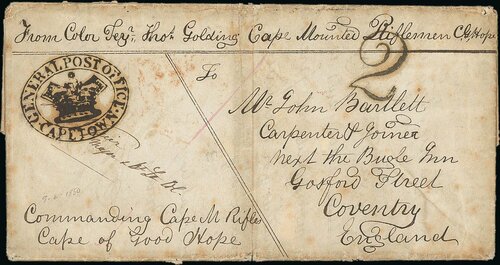 From Color Serjt. Thos. Golding Cape Mounted Riflemen C G Hope
GENERAL POST OFFICE
CAPE TOWN
2
To
Mr. John Bartlett
Carpenter & Joiner
next the Bugle Inn
Gosford Street
Coventry
England
Commanding Cape M Rifles
Cape of Good Hope